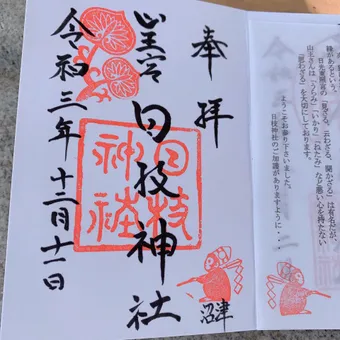 奉拝
山王宮 日枝神社
令和三年十二月十一日
日枝神社
沼津
縁があるという。
日光東照宮の「見ざる、云わざる、聞かざる」は有名だが、
山王さんは「うらみ」「いかり」「ねたみ」など悪い心を持たない
「思わざる」を大切にしております。
ようこそお参り下さいました。
日枝神社のご加護がありますように・・・